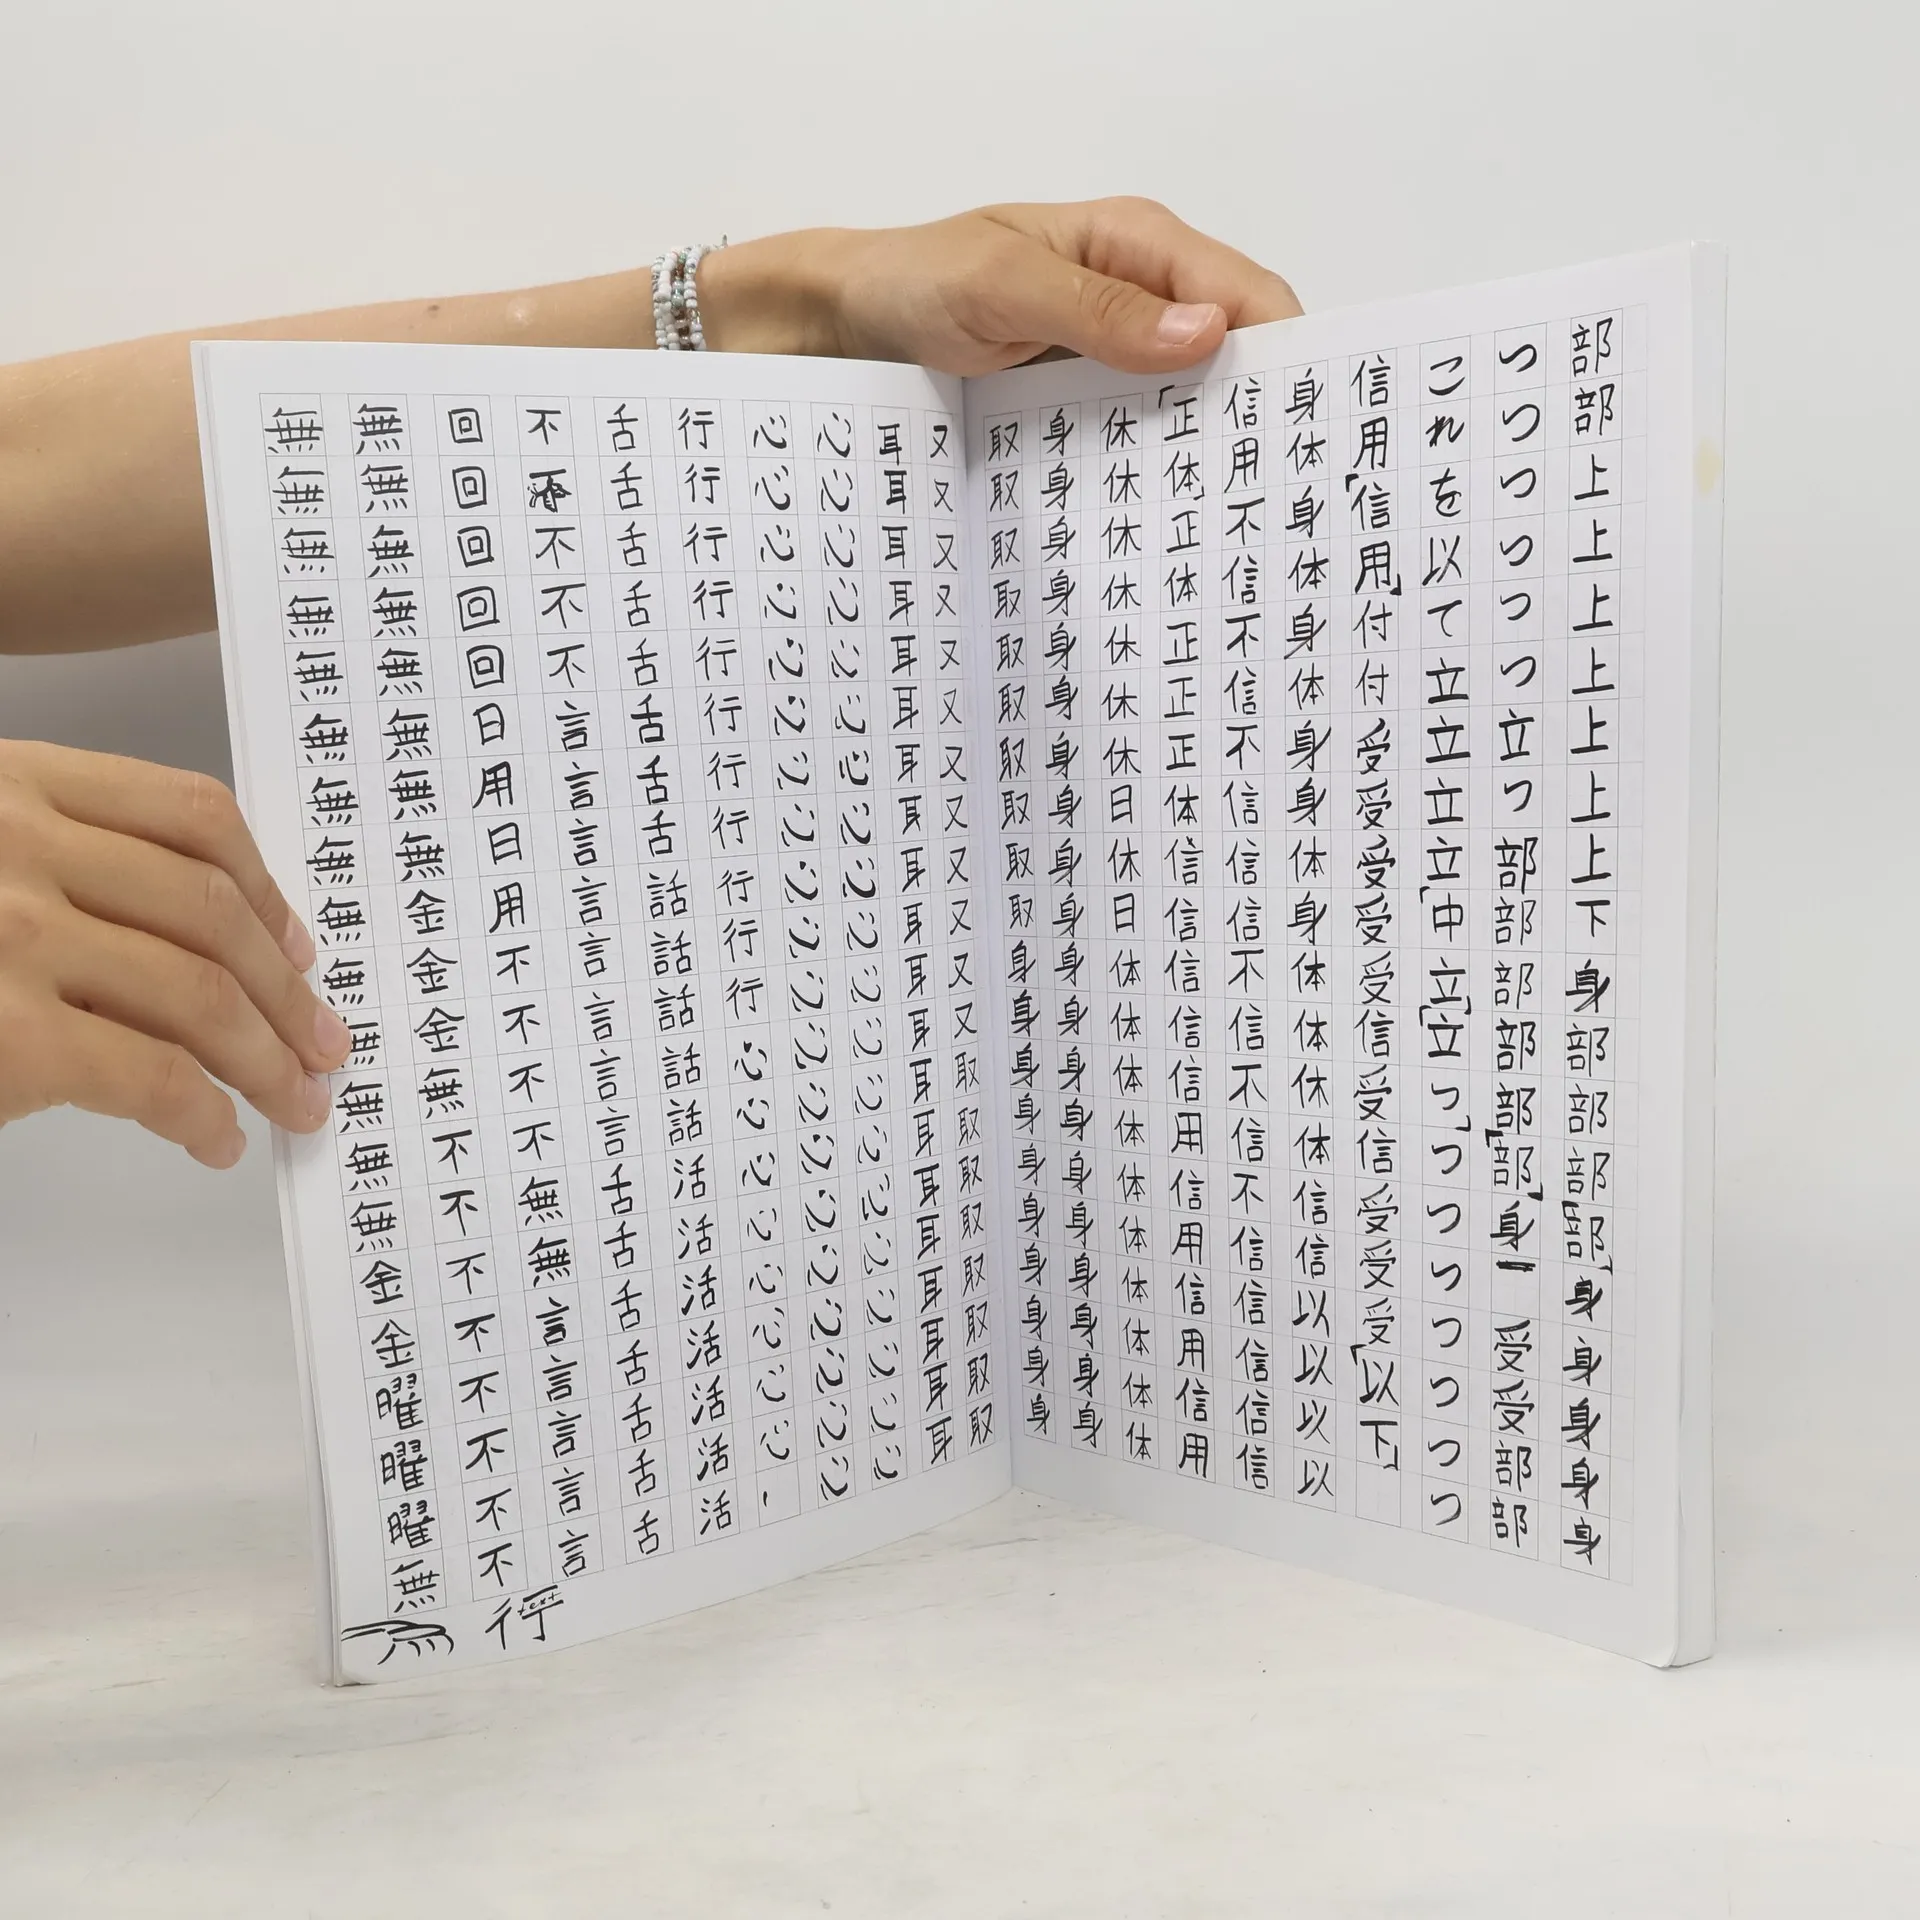 部部上上上上上上上下身部部部「部」身身身身身
つつつつつつ立つ部部部部部「部」身ー受受部部
これを以て立立立立「中立」「立つ」つつつつつつつ
信用「信用」付付受受受受受信受信受受受「以下」
身体身体身体身身体身体体休体信信以以以以
信用不信不信不信信信不信不信不信信信信信
「正体」正体正正正体信信信信信用信用信用信用
休休休休休休休日休日体体体体体体体体体体
身身身身身身身身身身身身身身身身身身身身
取取取取取取取取取取身身身身身身身身身身
又又又又又又又又又又又又取取取取取取取取
耳耳耳耳耳耳耳耳耳耳耳耳耳耳耳耳耳耳耳耳
心心心心心心心心心心心心心心心心心心心心
心心心心心心心心心心心心心心心心心心心心
行行行行行行行行行行行心心心心心心心心
舌舌舌舌舌舌舌舌話話話話話活活活活活活活
不不不不言言言言言言言言舌舌舌舌舌舌舌
回回回回回日用日用不不不不無無言言言言言
無無無無無無無無金金金無不不不不不不不不
無無無無無無無無無無無無無無金金曜曜曜無
行
text